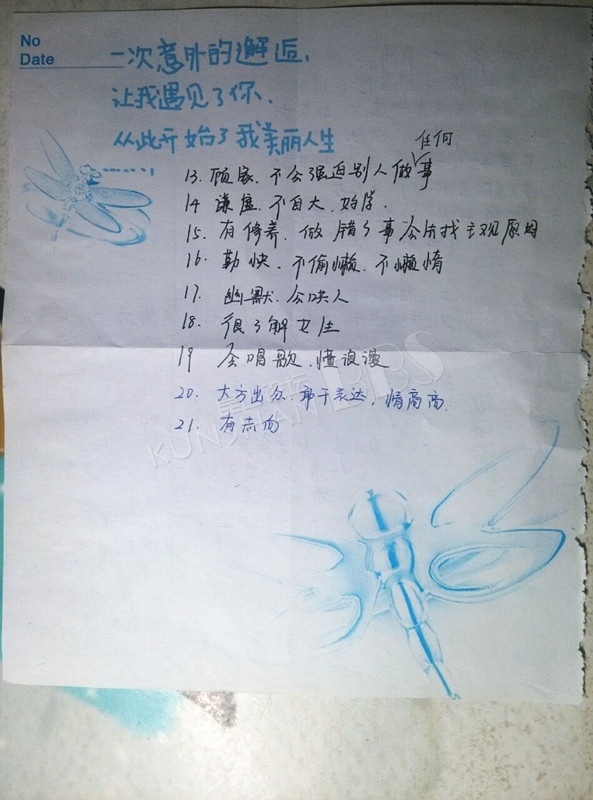 No
Date
一次意外的邂逅,
让我遇见了你、
从此开始了我美丽人生
任何
13. 顾家、不会强迫别人做事
14 谦虚、不自大、好学.
15. 有修养、做错了事会先找主观原因
16. 勤快、不偷懒、不懒惰
17. 幽默、会哄人
18. 很了解女生
19 会唱歌、懂浪漫
20. 大方出众、敢于表达, 情商高
21. 有志向
KUNSHAN BBS